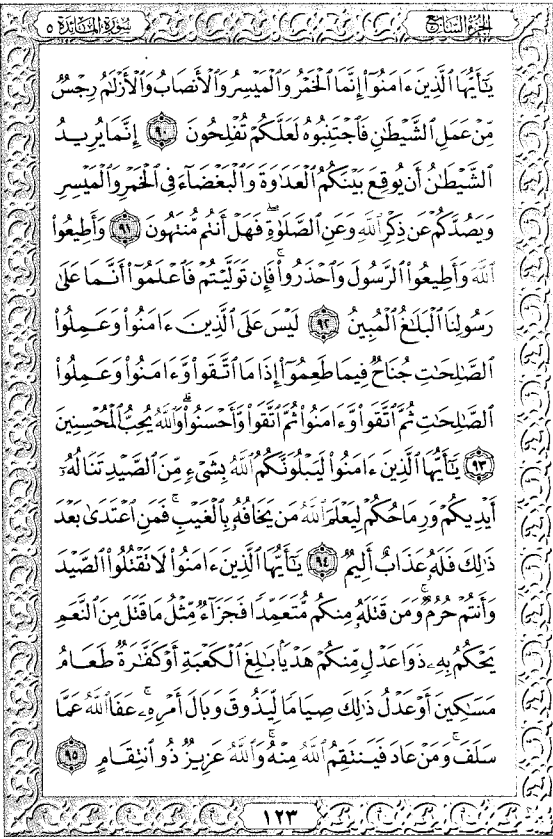 الجزء السابع
سورة المائدة ٥
يَٰٓأَيُّهَا ٱلَّذِينَ ءَامَنُوٓا۟ إِنَّمَا ٱلْخَمْرُ وَٱلْمَيْسِرُ وَٱلْأَنصَابُ وَٱلْأَزْلَٰمُ رِجْسٌ
مِّنْ عَمَلِ ٱلشَّيْطَٰنِ فَٱجْتَنِبُوهُ لَعَلَّكُمْ تُفْلِحُونَ ٩٠ إِنَّمَا يُرِيدُ
ٱلشَّيْطَٰنُ أَن يُوقِعَ بَيْنَكُمُ ٱلْعَدَٰوَةَ وَٱلْبَغْضَآءَ فِى ٱلْخَمْرِ وَٱلْمَيْسِرِ
وَيَصُدَّكُمْ عَن ذِكْرِ ٱللَّهِ وَعَنِ ٱلصَّلَوٰةِ ۖ فَهَلْ أَنتُم مُّنتَهُونَ ٩١ وَأَطِيعُوا۟
ٱللَّهَ وَأَطِيعُوا۟ ٱلرَّسُولَ وَٱحْذَرُوا۟ ۚ فَإِن تَوَلَّيْتُمْ فَٱعْلَمُوٓا۟ أَنَّمَا عَلَىٰ
رَسُولِنَا ٱلْبَلَٰغُ ٱلْمُبِينُ ٩٢ لَيْسَ عَلَى ٱلَّذِينَ ءَامَنُوا۟ وَعَمِلُوا۟
ٱلصَّٰلِحَٰتِ جُنَاحٌ فِيمَا طَعِمُوٓا۟ إِذَا مَا ٱتَّقَوا۟ وَّءَامَنُوا۟ وَعَمِلُوا۟
ٱلصَّٰلِحَٰتِ ثُمَّ ٱتَّقَوا۟ وَّءَامَنُوا۟ ثُمَّ ٱتَّقَوا۟ وَّأَحْسَنُوا۟ ۗ وَٱللَّهُ يُحِبُّ ٱلْمُحْسِنِينَ
٩٣ يَٰٓأَيُّهَا ٱلَّذِينَ ءَامَنُوا۟ لَيَبْلُوَنَّكُمُ ٱللَّهُ بِشَىْءٍ مِّنَ ٱلصَّيْدِ تَنَالُهُۥٓ
أَيْدِيكُمْ وَرِمَاحُكُمْ لِيَعْلَمَ ٱللَّهُ مَن يَخَافُهُۥ بِٱلْغَيْبِ ۚ فَمَنِ ٱعْتَدَىٰ بَعْدَ
ذَٰلِكَ فَلَهُۥ عَذَابٌ أَلِيمٌ ٩٤ يَٰٓأَيُّهَا ٱلَّذِينَ ءَامَنُوا۟ لَا تَقْتُلُوا۟ ٱلصَّيْدَ
وَأَنتُمْ حُرُمٌ ۚ وَمَن قَتَلَهُۥ مِنكُم مُّتَعَمِّدًا فَجَزَآءٌ مِّثْلُ مَا قَتَلَ مِنَ ٱلنَّعَمِ
يَحْكُمُ بِهِۦ ذَوَا عَدْلٍ مِّنكُمْ هَدْيًۢا بَٰلِغَ ٱلْكَعْبَةِ أَوْ كَفَّٰرَةٌ طَعَامُ
مَسَٰكِينَ أَوْ عَدْلُ ذَٰلِكَ صِيَامًا لِّيَذُوقَ وَبَالَ أَمْرِهِۦ ۗ عَفَا ٱللَّهُ عَمَّا
سَلَفَ ۚ وَمَنْ عَادَ فَيَنتَقِمُ ٱللَّهُ مِنْهُ ۗ وَٱللَّهُ عَزِيزٌ ذُو ٱنتِقَامٍ ٩٥
١٢٣